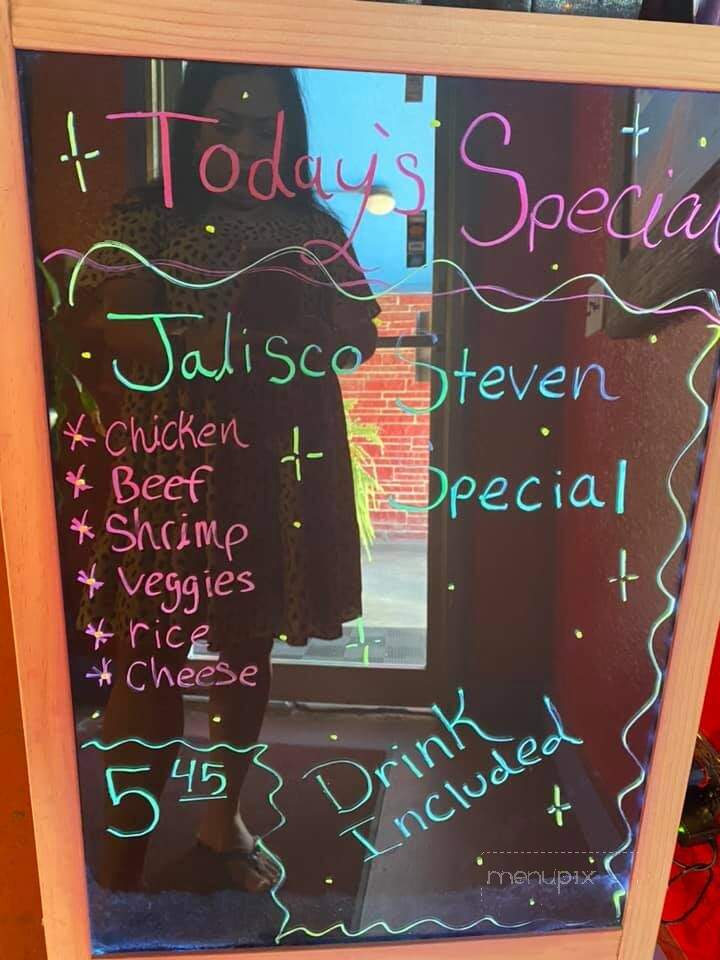 Today's Special
Jalisco Steven
Special
* Chicken
* Beef
* Shrimp
* veggies
* rice
* Cheese
5 45
Drink
Included
menupix